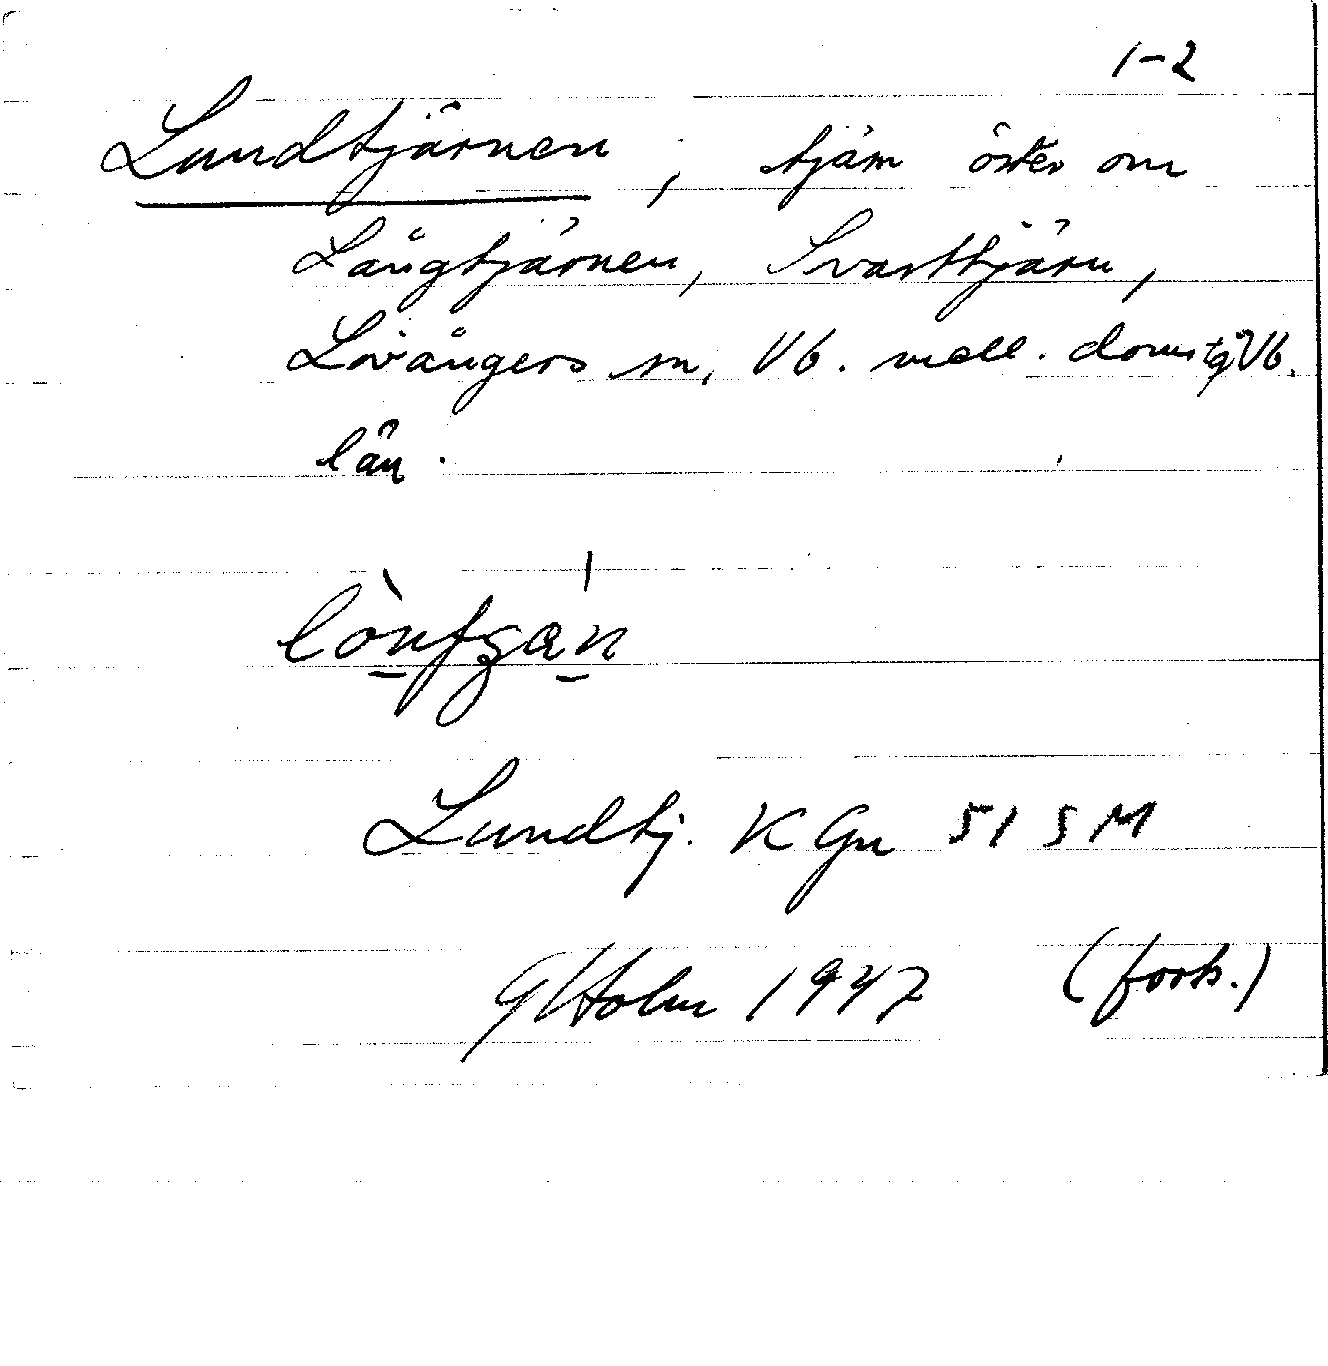 1-2
Lundtjärnen, tjärn öster om
Långtjärnen, Svarttjärn,
Lövångers sn, Vb. mell. domstg Vb.
län.
Lundtj. K Gn 51 SM
G Holm 1947 (forts.)